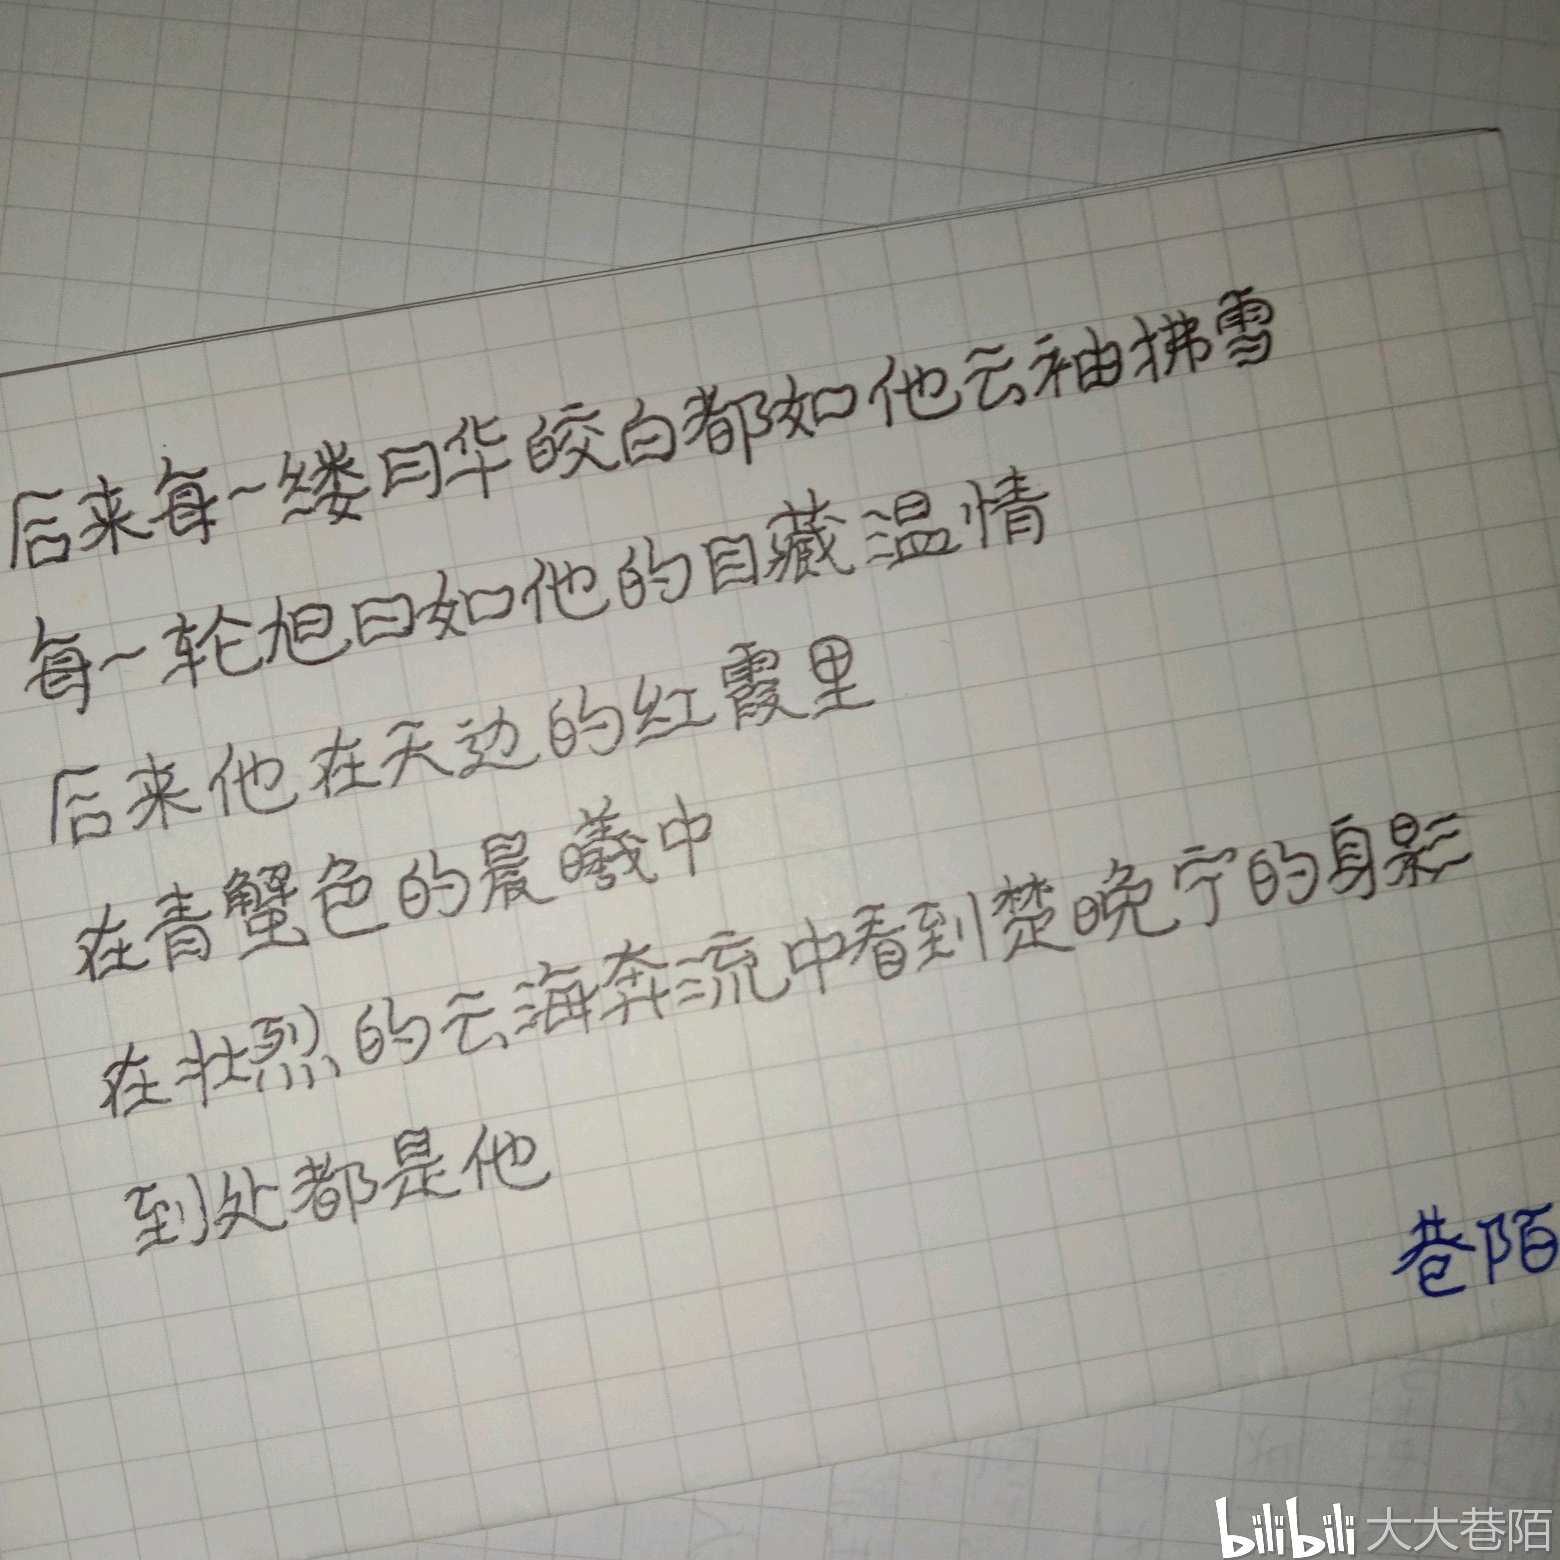 后来每一缕月华皎白都如他云袖拂雪
每一轮旭日如他的目藏温情
后来他在天边的红霞里
在青蟹色的晨曦中
在壮烈的云海奔流中看到楚晚宁的身影
到处都是他
巷陌
bilibili 大大巷陌